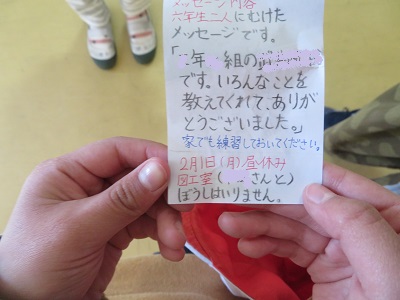 メッセージ内容
六年生二人にむけた
メッセージです。
「 年 組の
です。いろんなことを
教えてくれて、ありが
とうございました。」
家でも練習しておいてください。
2月1日(月)昼休み
図工室( さんと)
ぼうしはいりません。